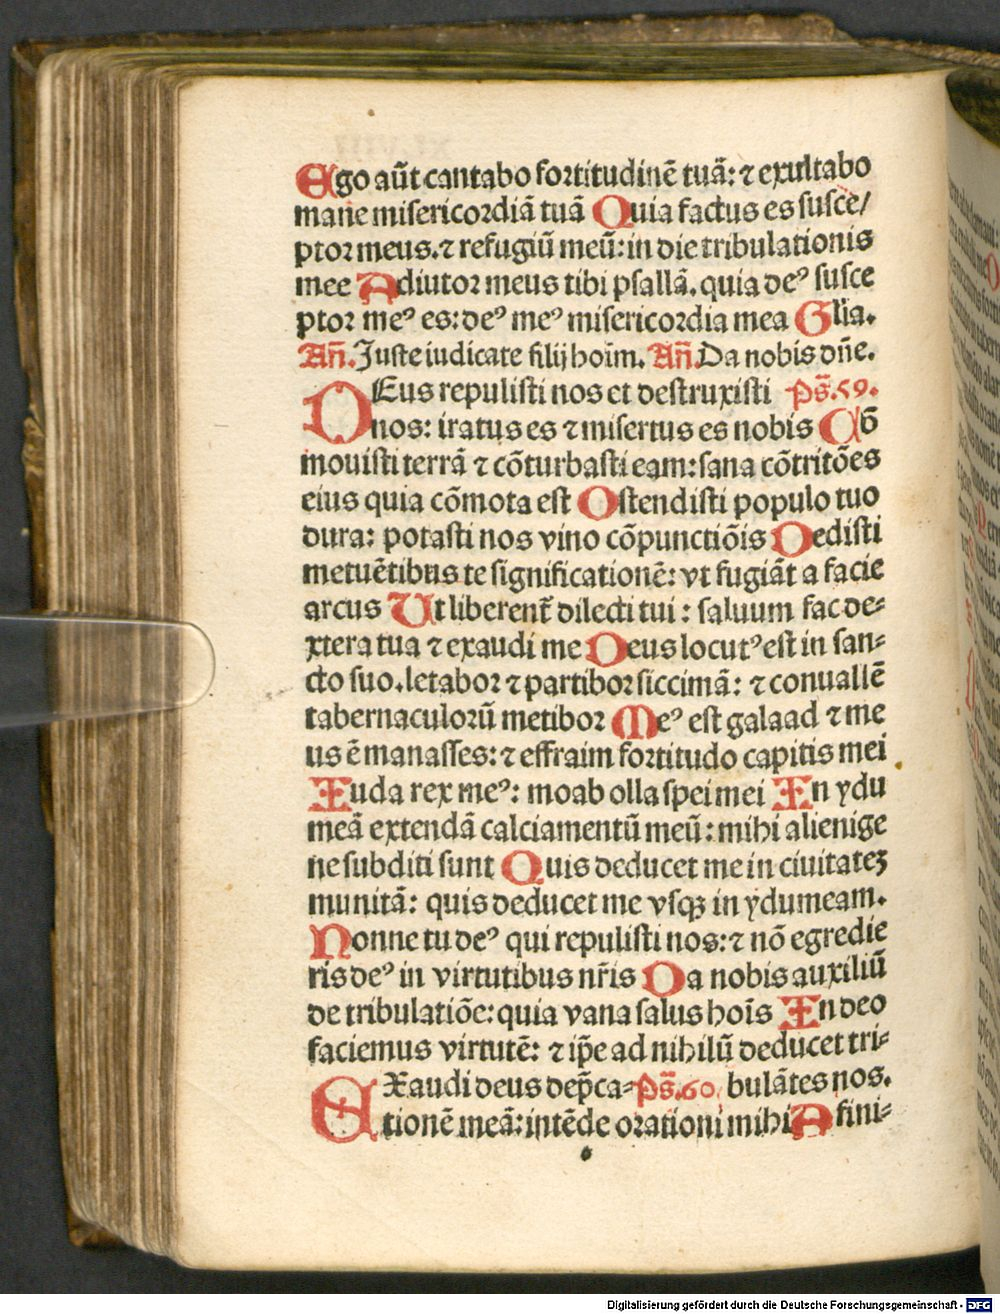 Ego aūt cantabo fortitudinē tuā: ⁊ exultabo
mane misericordiā tuā Quia factus es susce/
ptor meus. ⁊ refugiū meū: in die tribulationis
mee Adiutor meus tibi psallā. quia deꝰ susce
ptor meꝰ es: deꝰ meꝰ misericordia mea Glia.
An̄. Juste iudicate filij hoim̄. An̄. Da nobis dn̄e.
DEus repulisti nos et destruxisti Ps̄. 59.
nos: iratus es ⁊ misertus es nobis Cō
mouisti terrā ⁊ cōturbasti eam: sana cōtritōes
eius quia cōmota est Ostendisti populo tuo
dura: potasti nos vino cōpunctiōis Dedisti
metuētibus te significationē: vt fugiāt a facie
arcus Ut liberent̄ dilecti tui: saluum fac de⸗
xtera tua ⁊ exaudi me Deus locutꝰ est in san⸗
cto suo. letabor ⁊ partibor siccimā: ⁊ conuallē
tabernaculorū metibor Meꝰ est galaad ⁊ me
us ē manasses: ⁊ effraim fortitudo capitis mei
Iuda rex meꝰ: moab olla spei mei In ydu
meā extendā calciamentū meū: mihi alienige
ne subditi sunt Quis deducet me in ciuitateꝫ
munitā: quis deducet me vsqꝫ in ydumeam.
Nonne tu deꝰ qui repulisti nos: ⁊ nō egredie
ris deꝰ in virtutibus nr̄is Da nobis auxiliū
de tribulatiōe: quia vana salus hoīs In deo
faciemus virtutē: ⁊ ip̄e ad nihilū deducet tri⸗
EXaudi deus dep̄ca⸗ Ps̄. 60. bulātes nos.
tionē meā: intēde orationi mihi A fini⸗
Digitalisierung gefördert durch die Deutsche Forschungsgemeinschaft - DFG